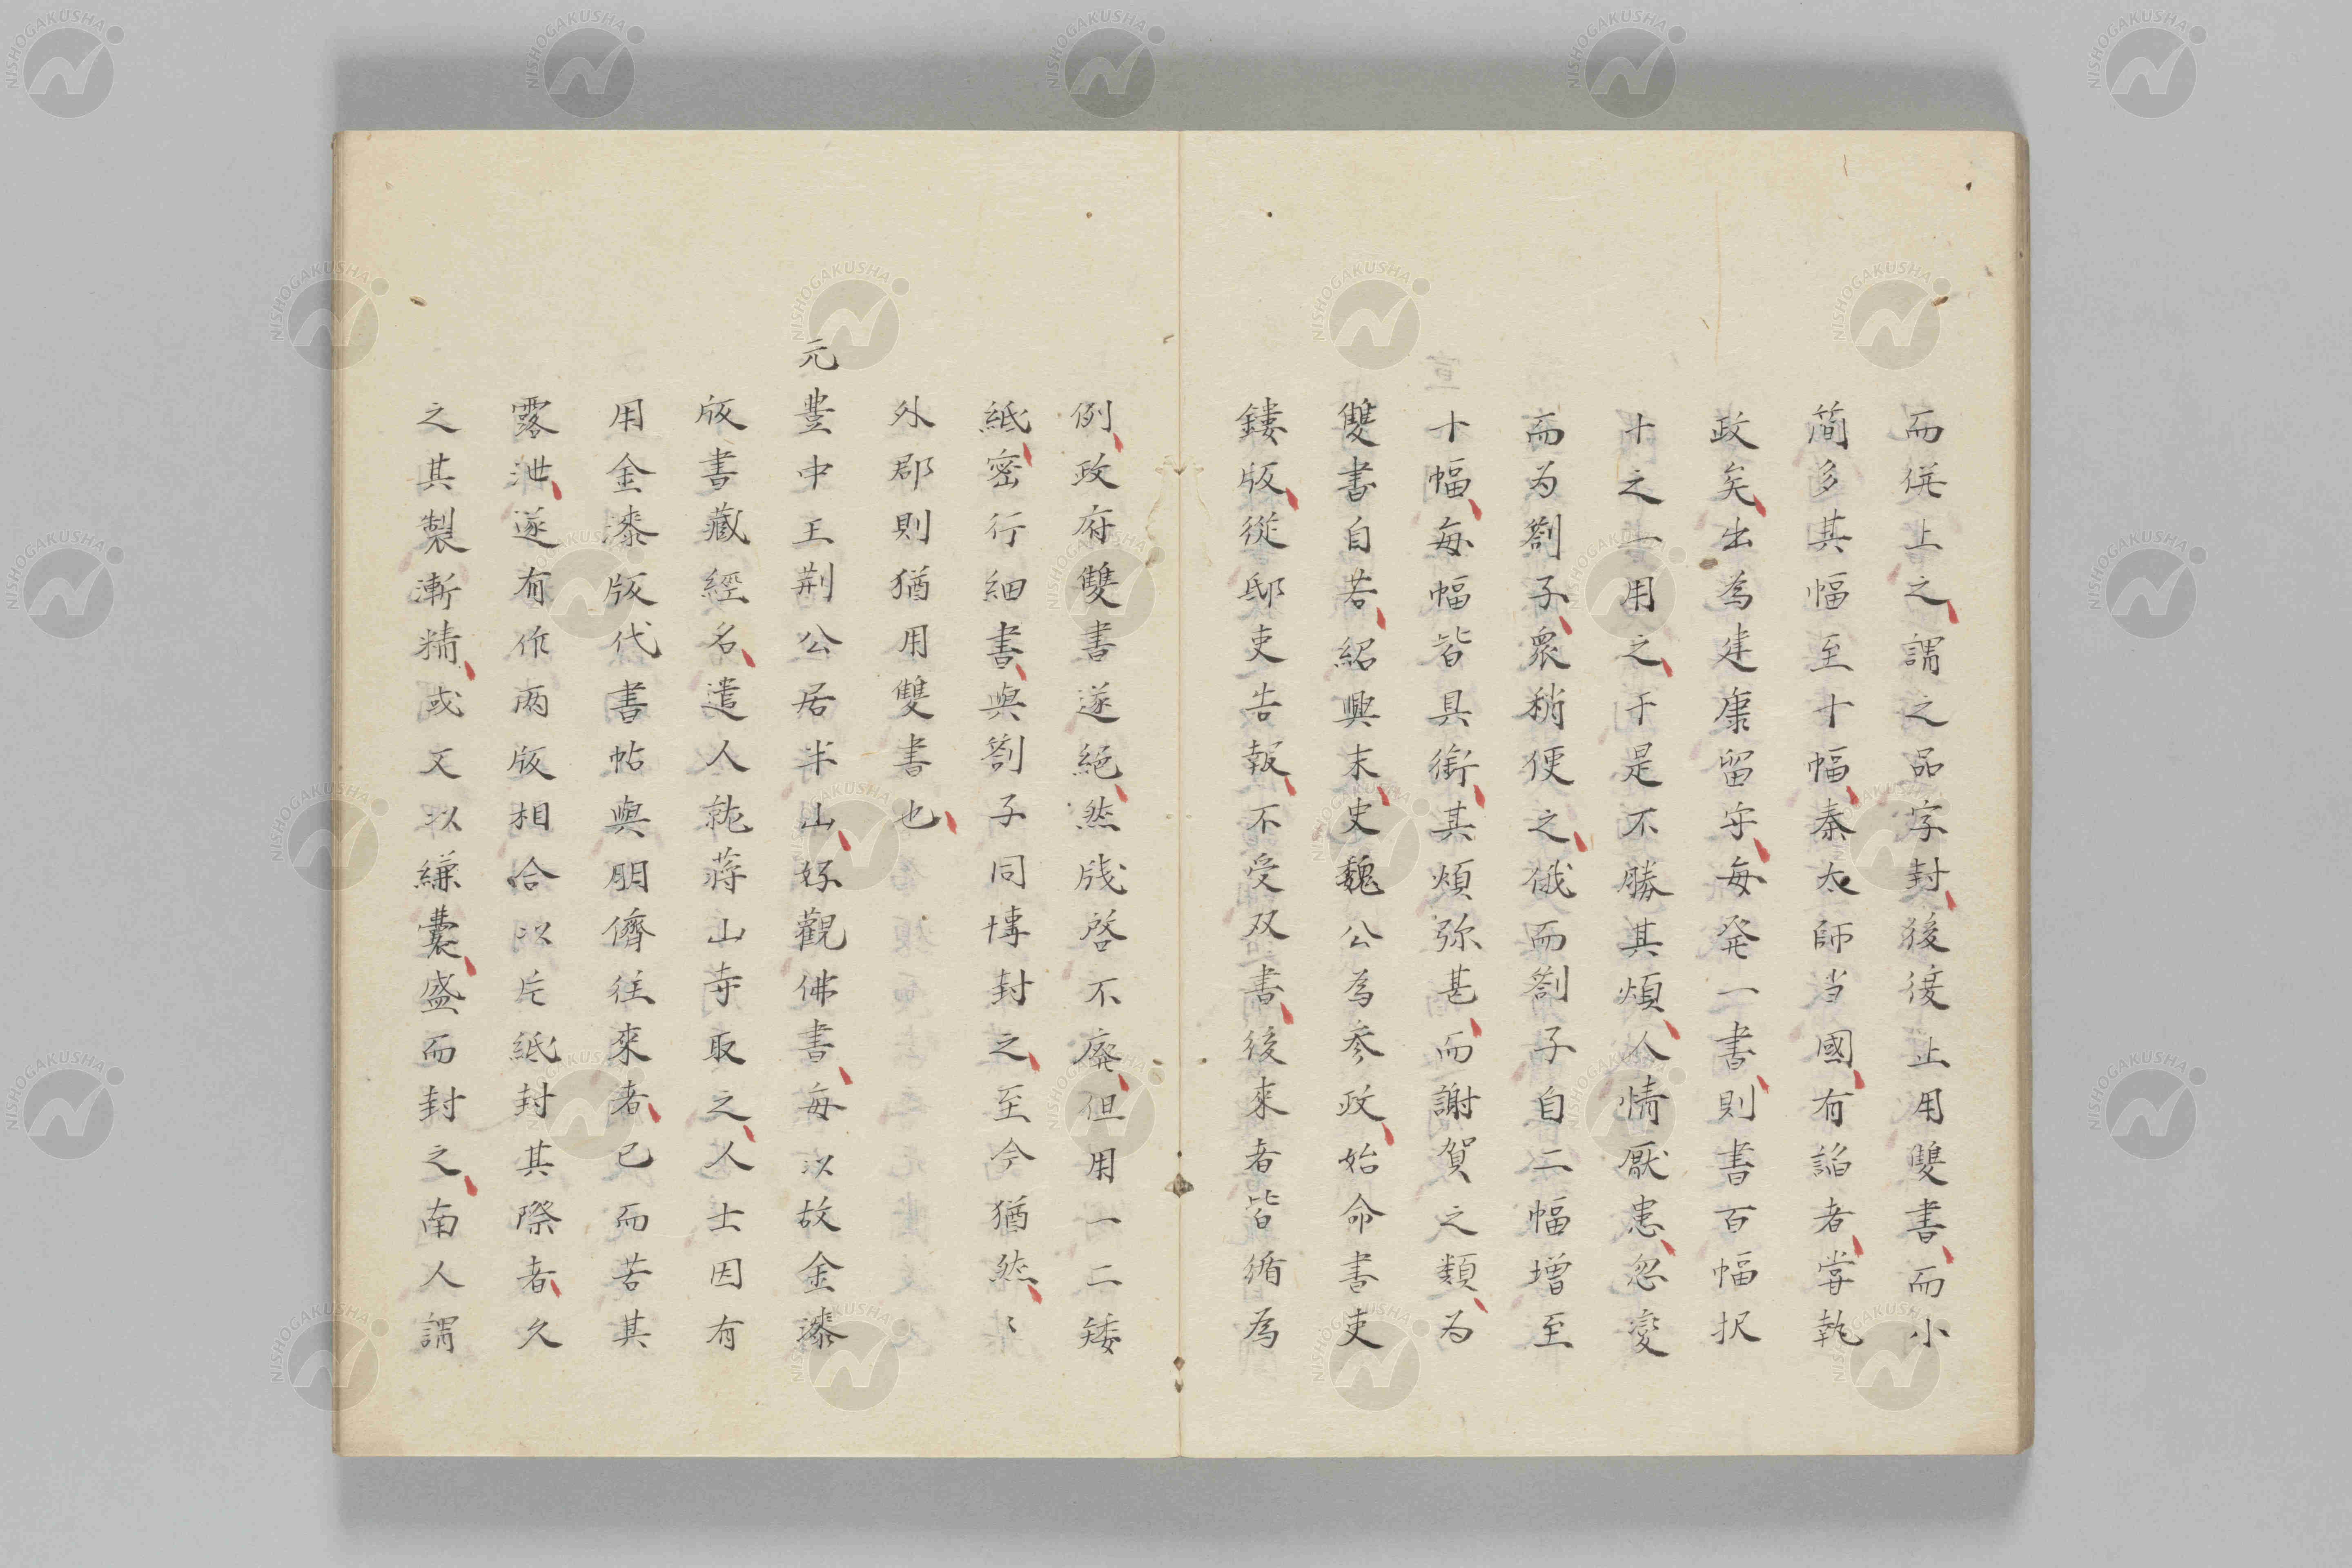 而併上之謂之品字封後後止用雙書而小
簡多其幅至十幅秦太師当國有諂者嘗執
政矣出為建康留守每発一書則書百幅択
十之一用之于是不勝其煩人情厭患忽變
而为劄子衆稍便之俄而劄子自二幅增至
十幅每幅皆具銜其煩弥甚而謝賀之類为
雙書自若紹興末史魏公為参政始命書吏
鏤版從邸吏告報不受双書後来者皆循為
例政府雙書遂絶然牋啓不廢但用一二矮
紙密行細書與劄子同博封之至今猶然
外郡則猶用雙書也
元豊中王荆公居半山好觀佛書每以故金漆
版書藏經名遣人就蒋山寺取之人士因有
用金漆版代書帖與朋儕往來者已而苦其
露泄遂有作两版相合以片紙封其際者久
之其製漸精或又以縑囊盛而封之南人謂
NISHOGAKUSHA